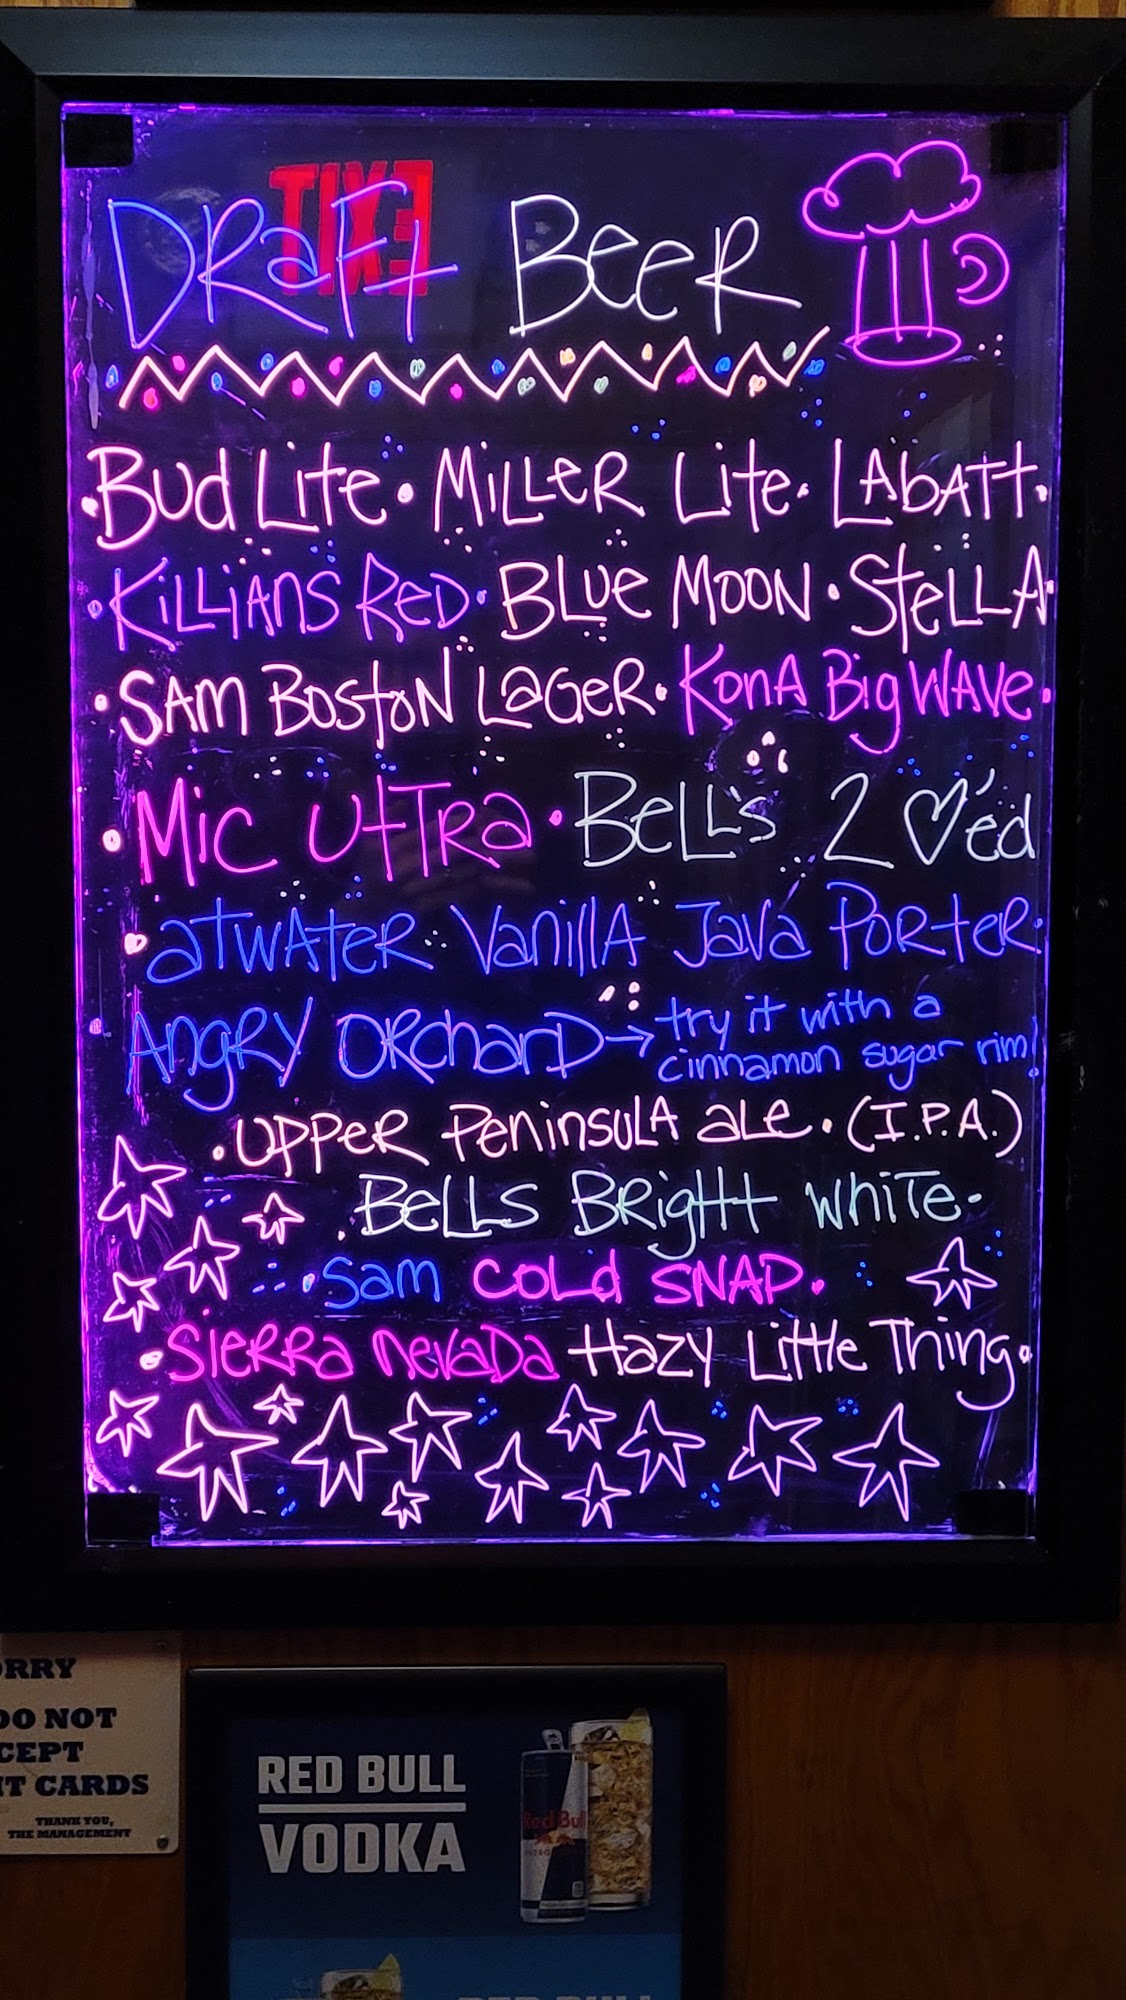 EXIT
DRaFt BeeR
• Bud Lite • MiLLeR Lite • LAbATT •
• KiLLiANS ReD • BLue MOON • SteLLA •
• SAM BOStON LaGeR • KonA Big WAVe •
• Mic ULTRa • BeLL's 2 ♡'ed
• aTWAteR Vanilla Java PORteR •
• ANgRy ORchanD → try it with a
cinnamon sugar rim!
• UPPeR PeninsuLA aLe • (I.P.A.)
• BeLLS BRight White •
• Sam COLd SNAP •
• SieRRa NevaDa Hazy Little Thing •
ORRY
DO NOT
CEPT
IT CARDS
THANK YOU,
THE MANAGEMENT
RED BULL
VODKA
Red Bull
RED BULL